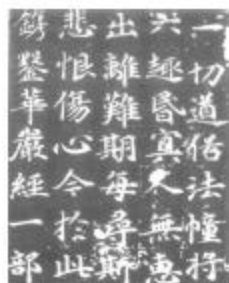 一切道俗法幢将
六趣昏冥久無惠
出離難期每尋斯
悲恨傷心今於此
鐫鏨華嚴經一部